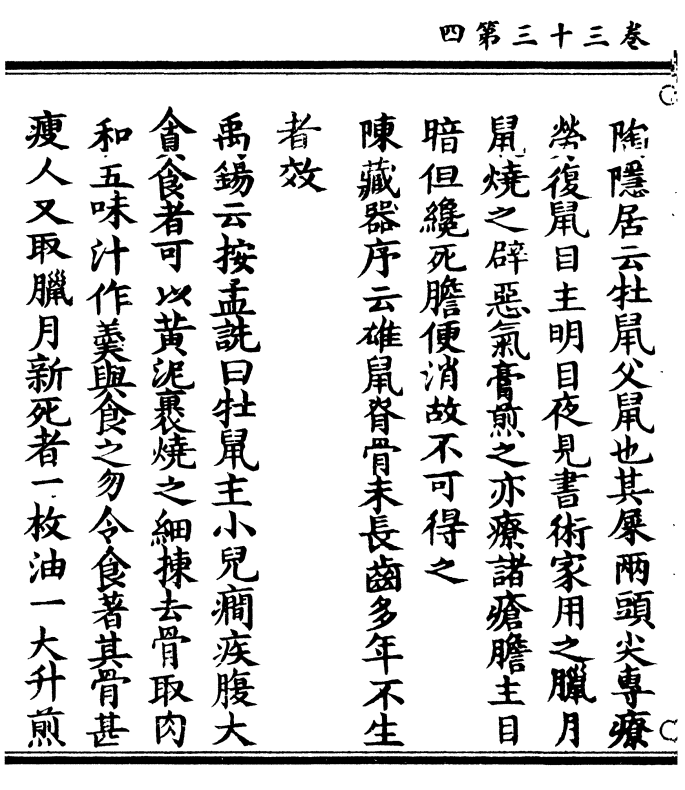 卷三十三第四
陶隱居云牡鼠父鼠也其屎兩頭尖專療
勞復鼠目主明目夜見書術家用之臘月
鼠燒之辟惡氣膏煎之亦療諸瘡膽主目
暗但纔死膽便消故不可得之
陳藏器序云雄鼠脊骨未長齒多年不生
者效
禹錫云按孟詵曰牡鼠主小兒癎疾腹大
貪食者可以黃泥裹燒之細揀去骨取肉
和五味汁作羹與食之勿令食著其骨甚
瘦人又取臘月新死者一枚油一大升煎